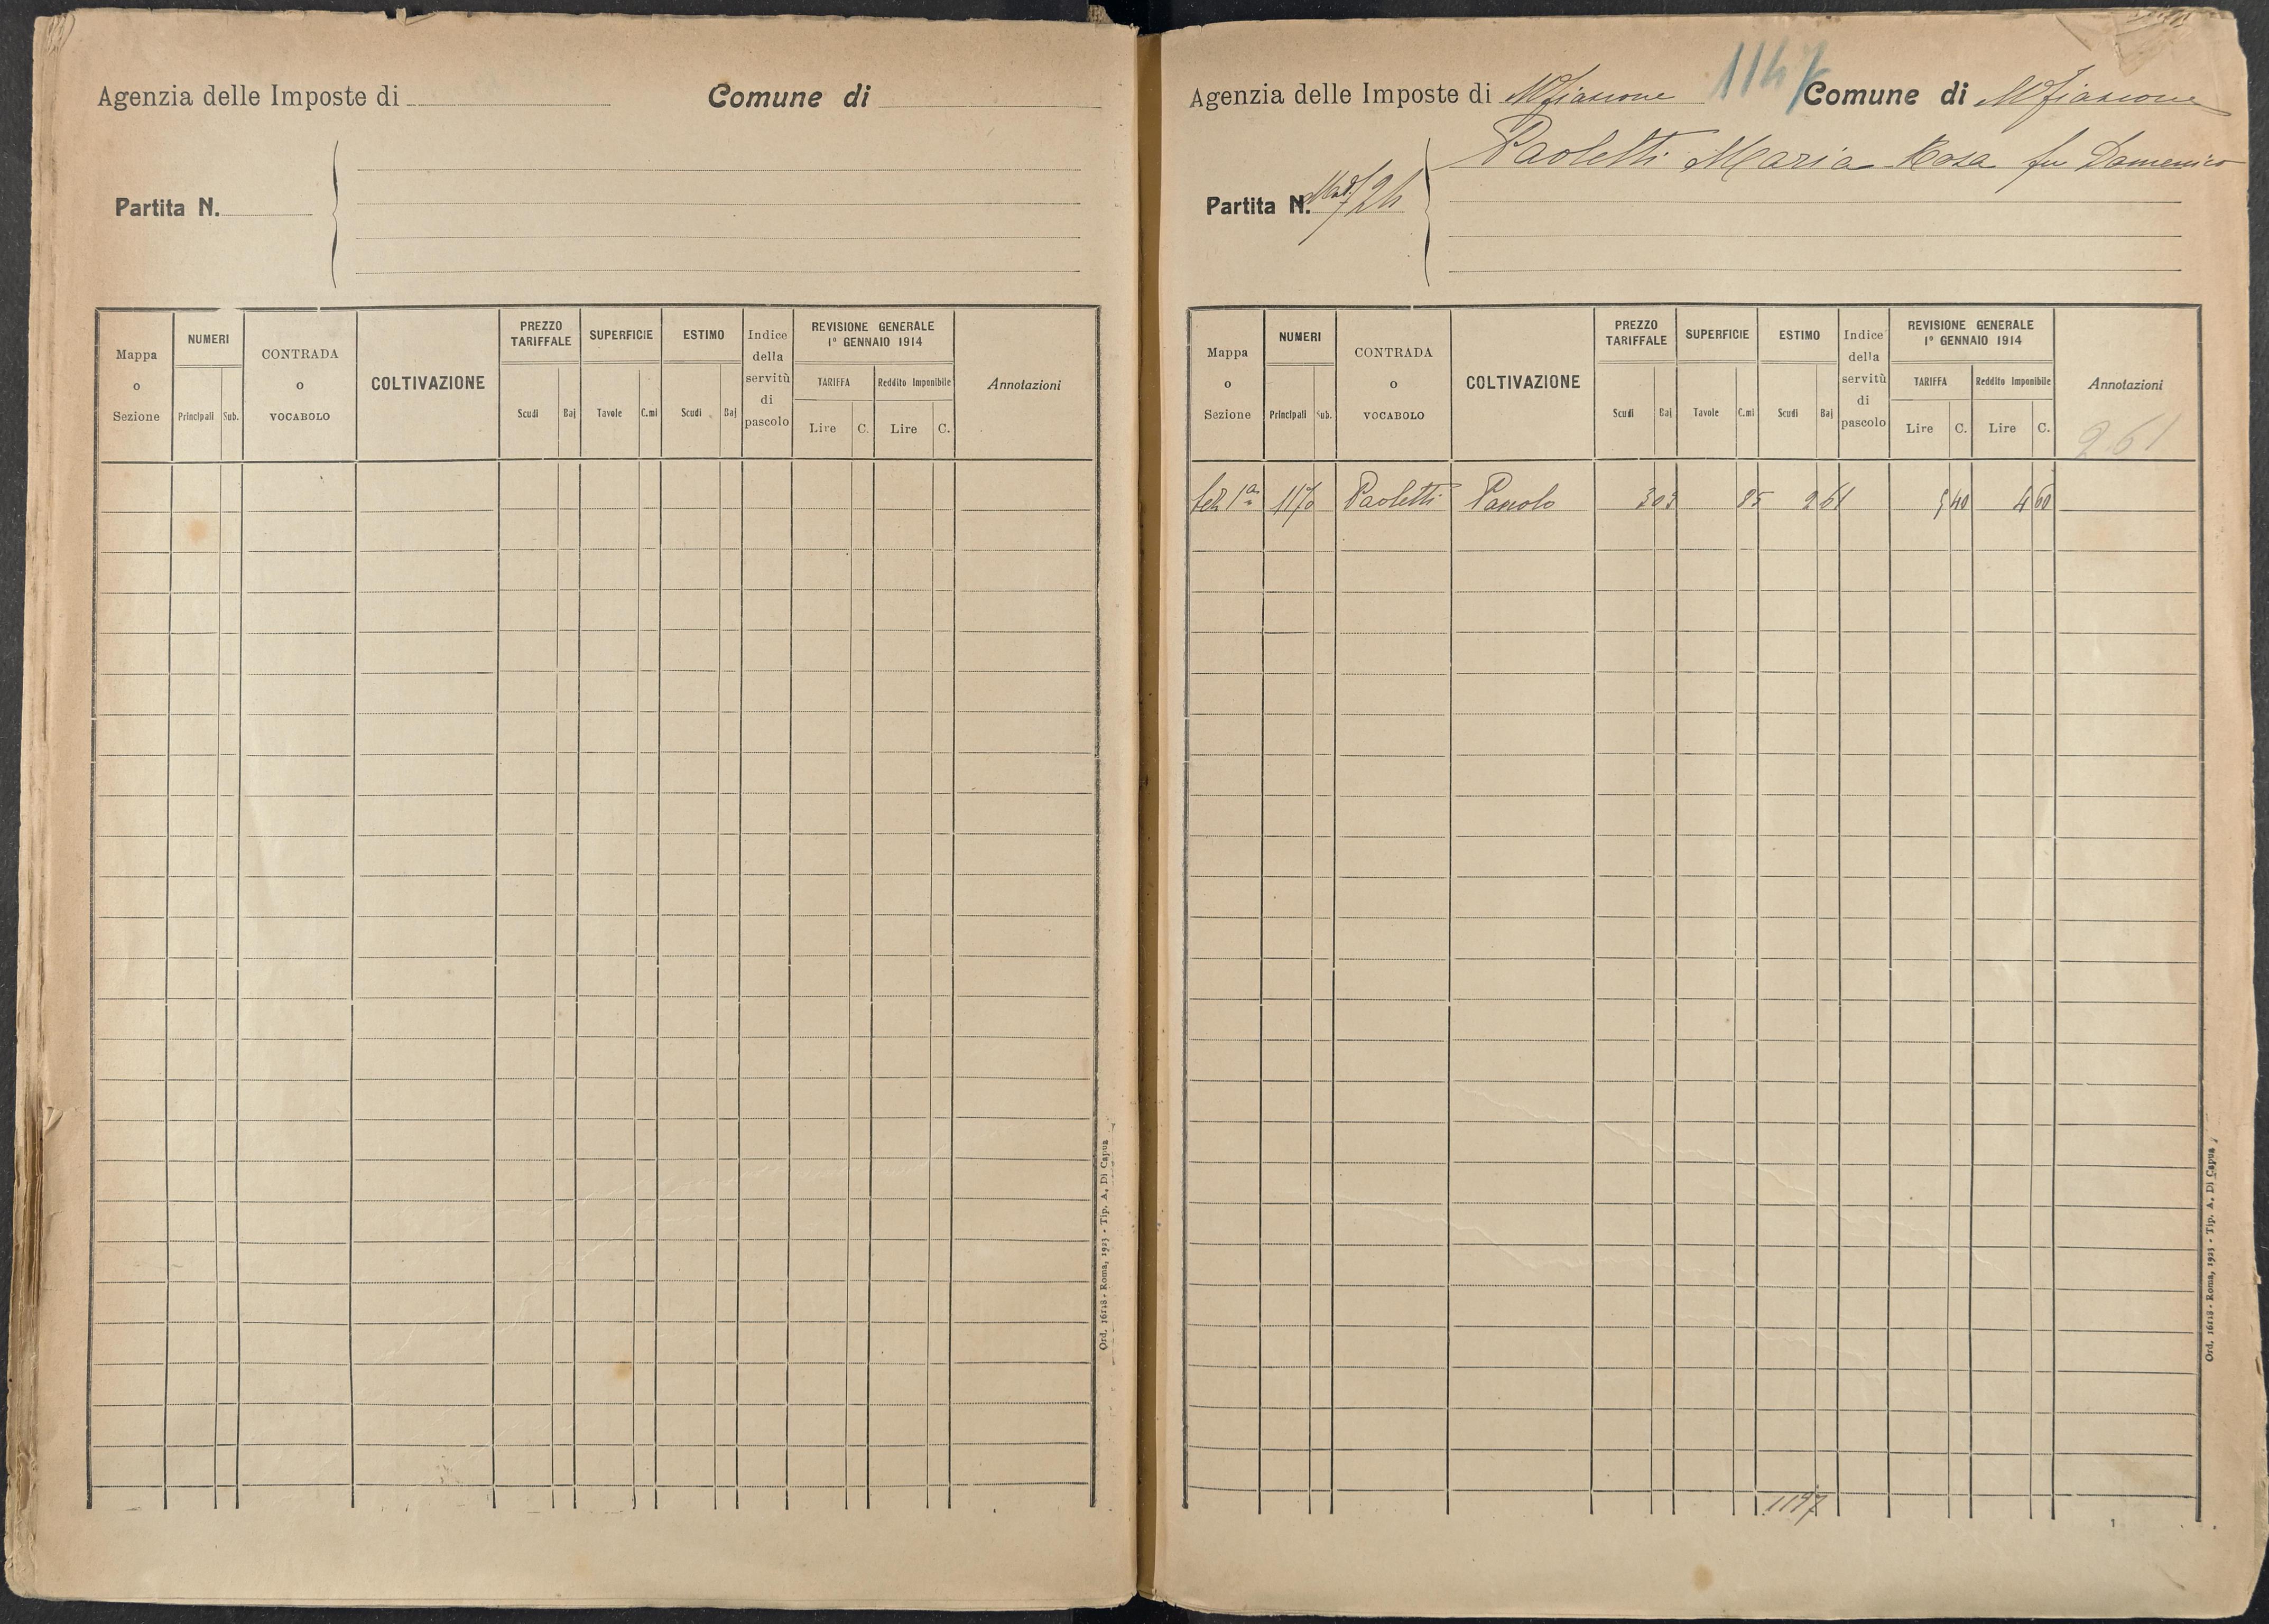 Agenzia delle Imposte di
Comune di
Partita N.
Mappa o Sezione
NUMERI
Principali
Sub.
CONTRADA o VOCABOLO
COLTIVAZIONE
PREZZO TARIFFALE
Scudi
Baj
SUPERFICIE
Tavole
C.mi
ESTIMO
Scudi
Baj
Indice della servitù di pascolo
REVISIONE GENERALE
1° GENNAIO 1914
TARIFFA
Reddito Imponibile
Lire
C.
Lire
C.
Annotazioni
Ord. 16118 - Roma, 1923 - Tip. A. Di Capua
1147
Agenzia delle Imposte di Mfiascone
Comune di Mfiascone
Paoletti Maria Rosa fu Domenico
Partita N.
Mappa o Sezione
NUMERI
Principali
Sub.
CONTRADA o VOCABOLO
COLTIVAZIONE
PREZZO TARIFFALE
Scudi
Baj
SUPERFICIE
Tavole
C.mi
ESTIMO
Scudi
Baj
Indice della servitù di pascolo
REVISIONE GENERALE
1° GENNAIO 1914
TARIFFA
Reddito Imponibile
Lire
C.
Lire
C.
Annotazioni
261
1ª 1170 Paoletti 303 85 2 61 5 40 4 60
1197
1
Ord. 16118 - Roma, 1923 - Tip. A. Di Capua